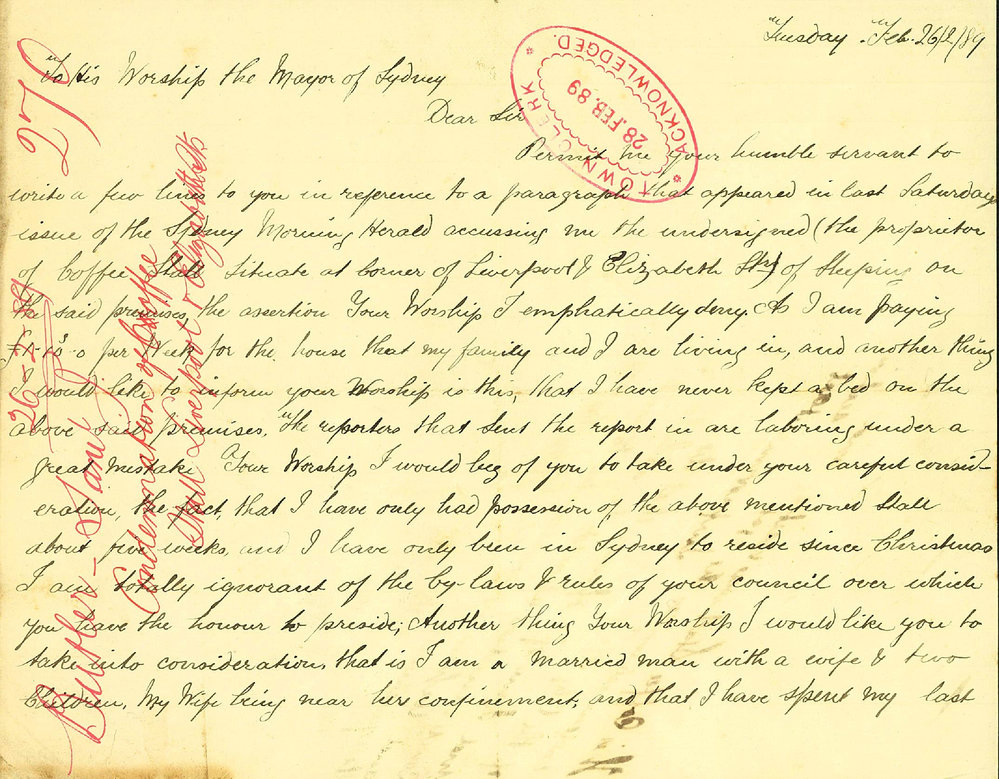 Tuesday Feb. 26/2/89
To His Worship the Mayor of Sydney
Dear Sir
Permit me your humble servant to
write a few lines to you in reference to a paragraph that appeared in last Saturdays
issue of the Sydney Morning Herald accussing me the undersigned (the proprietor
of Coffee Stall Situate at Corner of Liverpool & Elizabeth Sts) of Sleeping on
the said premises, the assertion Your Worship I emphatically deny. As I am paying
per Week for the house that my family and I are living in, and another thing
I would like to inform your Worship is this, that I have never kept a bed on the
above said premises. The reporters that sent the report in are laboring under a
great mistake Your Worship I would beg of you to take under your careful consid-
eration, the fact, that I have only had possession of the above mentioned Stall
about five weeks, and I have only been in Sydney to reside since Christmas
I am totally ignorant of the by-laws & rules of your council over which
you have the honour to preside; Another thing Your Worship I would like you to
take into consideration, that is I am a married man with a wife & two
Children, My Wife being near her confinement, and that I have spent my last
TOWN CLERK
28. FEB. 89
ACKNOWLEDGED.
270
Butler - Saml
26-2-89
Condemnation of Coffee
Stall Liverpool & Elizabeth Sts